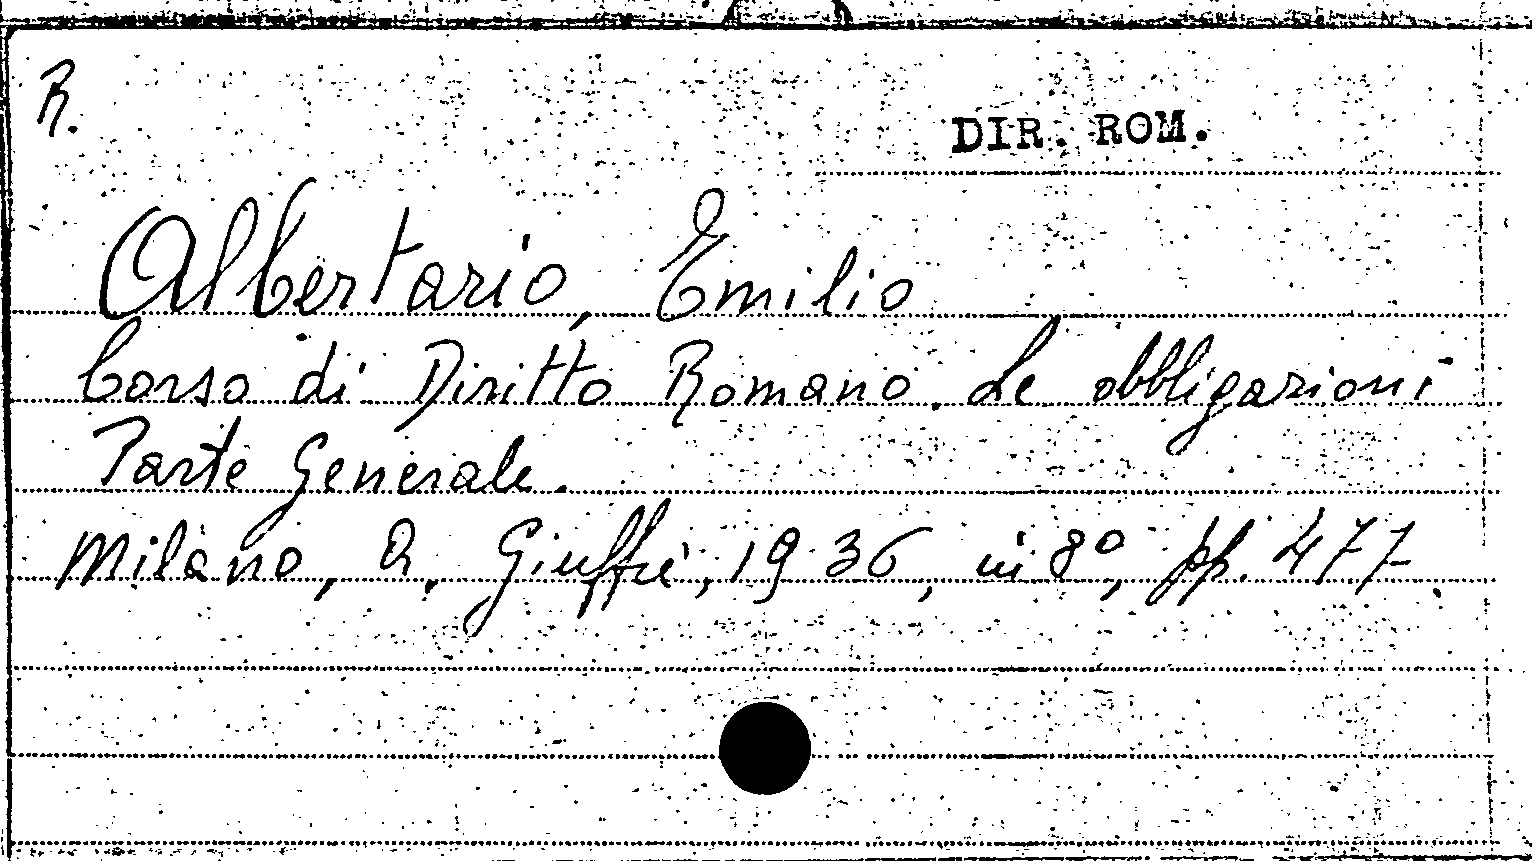 R.
DIR. ROM.
Albertario, Emilio
Corso di Diritto Romano. Le obbligazioni
Parte Generale.
Milano, A. Giuffrè, 1936, in 8º, pp. 477.